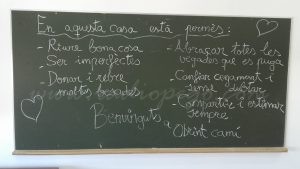 En aquesta casa està permès:
- Riure bona cosa
- Ser imperfectes
- Donar i rebre
moltes besades
- Abraçar totes les
vegades que es puga
- Confiar cegament i
sense dubtar
- Compartir i estimar
sempre
Benvinguts a
Obrint camí